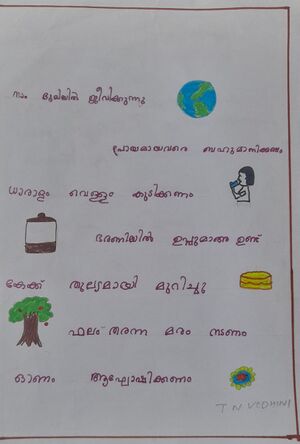 നാം ഭൂമിയിൽ ജീവിക്കുന്നു
പ്രായമായവരെ ബഹുമാനിക്കണം
ധാരാളം വെള്ളം കുടിക്കണം
ഭരണിയിൽ ഉപ്പുമാങ്ങ ഉണ്ട്
കേക്ക് തുല്യമായി മുറിച്ചു
ഫലം തരുന്ന മരം നടണം
ഓണം ആഘോഷിക്കണം
T N VEDHINI